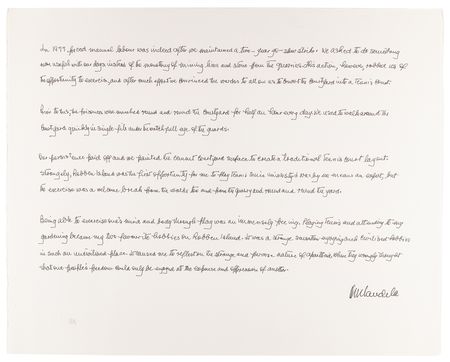 In 1977, forced manual labour was ended after we maintained a two-year go-slow strike. We asked to do something
more useful with our days instead of the monotony of mining lime and stone from the quarries. This action, however, robbed us of
the opportunity to exercise, and after much effort we convinced the warders to allow us to convert the courtyard into a tennis court.
Prior to this, the prisoners were marched round and round the courtyard for half an hour every day. We used to walk around the
courtyard quickly in single file under the watchful eye of the guards.
Our persistence paid off and we painted the cement courtyard surface to create a traditional tennis court layout.
Strangely, Robben Island was the first opportunity for me to play tennis since university. I was by no means an expert, but
the exercise was a welcome break from the walks to and from the quarry and round and round the yard.
Being able to exercise one's mind and body through play was an immensely freeing. Playing tennis and attending to my
gardening became my two favourite hobbies on Robben Island. It was a strange sensation enjoying such civilised hobbies
in such an uncivilised place. It caused me to reflect on the strange and perverse nature of apartheid, when they wrongly thought
that one people's freedom could only be enjoyed at the expense and oppression of another.
NMandela